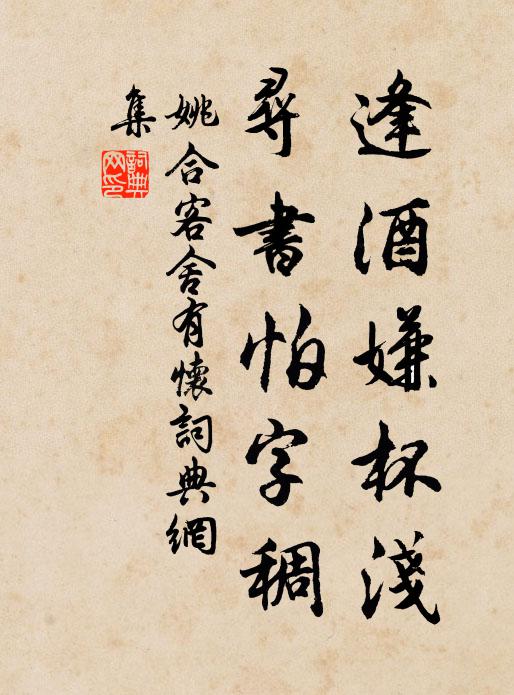 逢酒嫌杯淺
尋書怕字稠
姚合客舍有懷詞典網
集
詞典网印